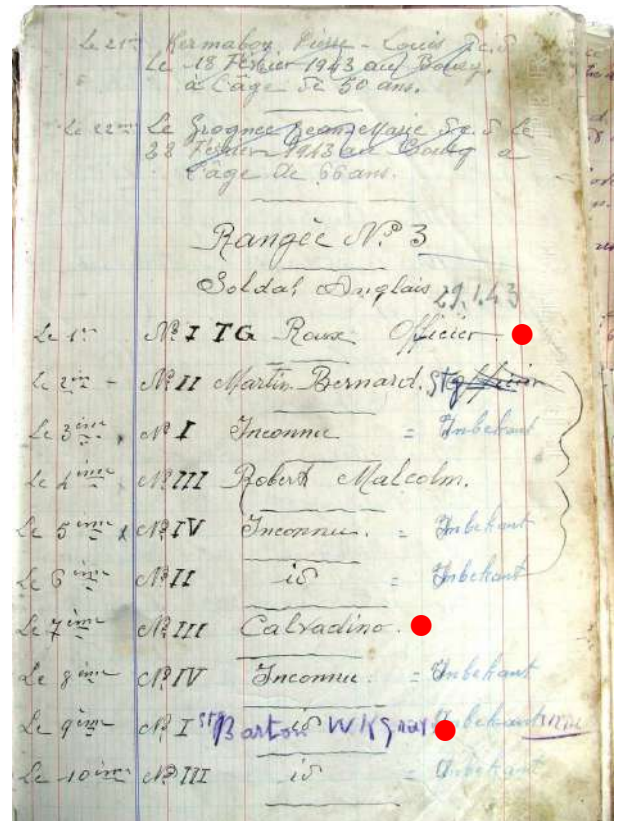 Le 21ème Kermabon Pierre - Louis D.c.d
Le 18 Février 1943 au Bourg
à l'âge de 50 ans.
Le 22ème Le Grognec Jean Marie D.c.d le
28 Février 1943 au Bourg a
l'âge de 66 ans.
Rangée N° 3
Soldat Anglais 29.1.43
Le 1er N° I TG Roux Officier
Le 2ème - N° II Martin Bernard. Stg
Le 3ème N° I Inconnu = Unbekant
Le 4ème N° III Robert Malcolm.
Le 5ème x N° IV Inconnu. = Unbekant
Le 6ème N° II id = Unbekant
Le 7ème N° III Calvadino.
Le 8ème N° IV Inconnu = Unbekant
Le 9ème N° I St Barton id W K Gray Unbekant
Le 10ème N° III id = Unbekant